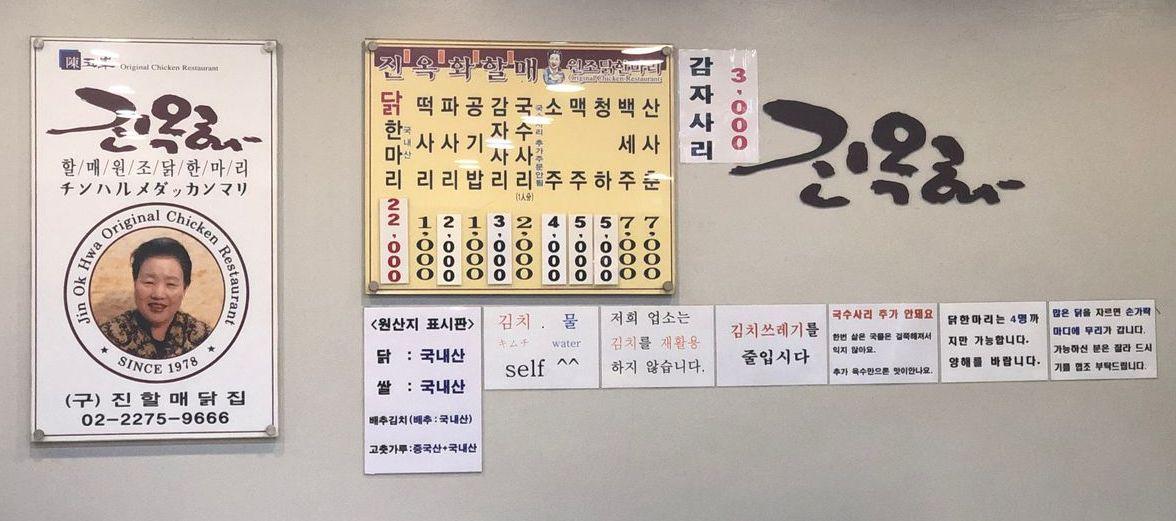 陳 Original Chicken Restaurant
진옥화
할/매/원/조/닭/한/마/리
チンハルメダッカンマリ
Jin Ok Hwa Original Chicken Restaurant
★ SINCE 1978 ★
(구) 진할매닭집
02-2275-9666
진옥화할매 원조닭한마리
Original Chicken Restaurants
닭한마리 국내산 22,000
떡사리 1,000
파사리 2,000
공기밥 1,000
감자사리 3,000
국수사리 (1人分) 2,000
국수사리 추가주문안됨
소주 4,000
맥주 5,000
청하 5,000
백세주 7,000
산사춘 7,000
감자사리 3,000
진옥화
<원산지 표시판>
닭 : 국내산
쌀 : 국내산
배추김치(배추:국내산)
고춧가루:중국산+국내산
김치 . 물
キムチ water
self ^^
저희 업소는
김치를 재활용
하지 않습니다.
김치쓰레기를
줄입시다
국수사리 추가 안돼요
한번 삶은 국물은 걸쭉해져서
익지 않아요.
추가 육수만으론 맛이안나요.
닭한마리는 4명까
지만 가능합니다.
양해를 바랍니다.
많은 닭을 자르면 손가락
마디에 무리가 갑니다.
가능하신 분은 잘라 드시
기를 협조 부탁드립니다.